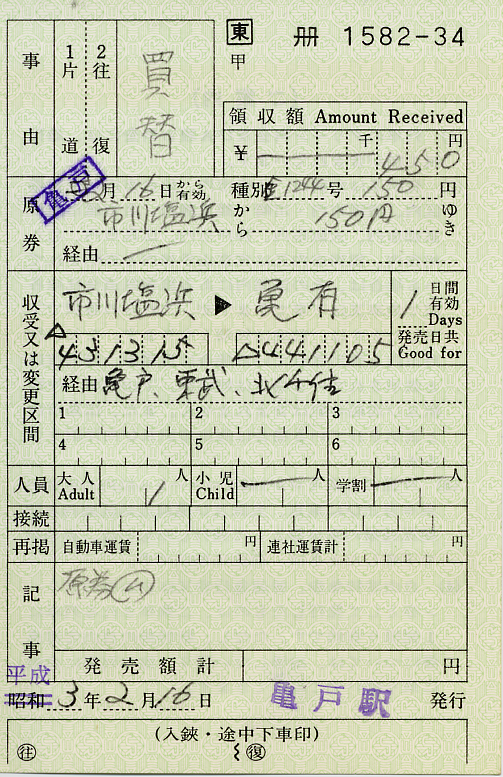 東 冊 1582-34
甲
事由 1片道 2往復 買替
領収額 Amount Received
¥ 千 円
450
亀戸
原券 2月16日から有効 種別 1244号 150円
市川塩浜 から 150円 ゆき
経由
収受又は変更区間 市川塩浜 ▶ 亀有 1日間有効 Days
431315 441105 発売日共 Good for
経由 亀戸、東武、北千住
1 2 3
4 5 6
人員 大人 Adult 1人 小児 Child 人 学割 人
接続
再掲 自動車運賃 円 連社運賃計 円
記事 原券
発売額計 円
平成
昭和 3年2月16日 亀戸駅 発行
(入鋏・途中下車印)
往 復